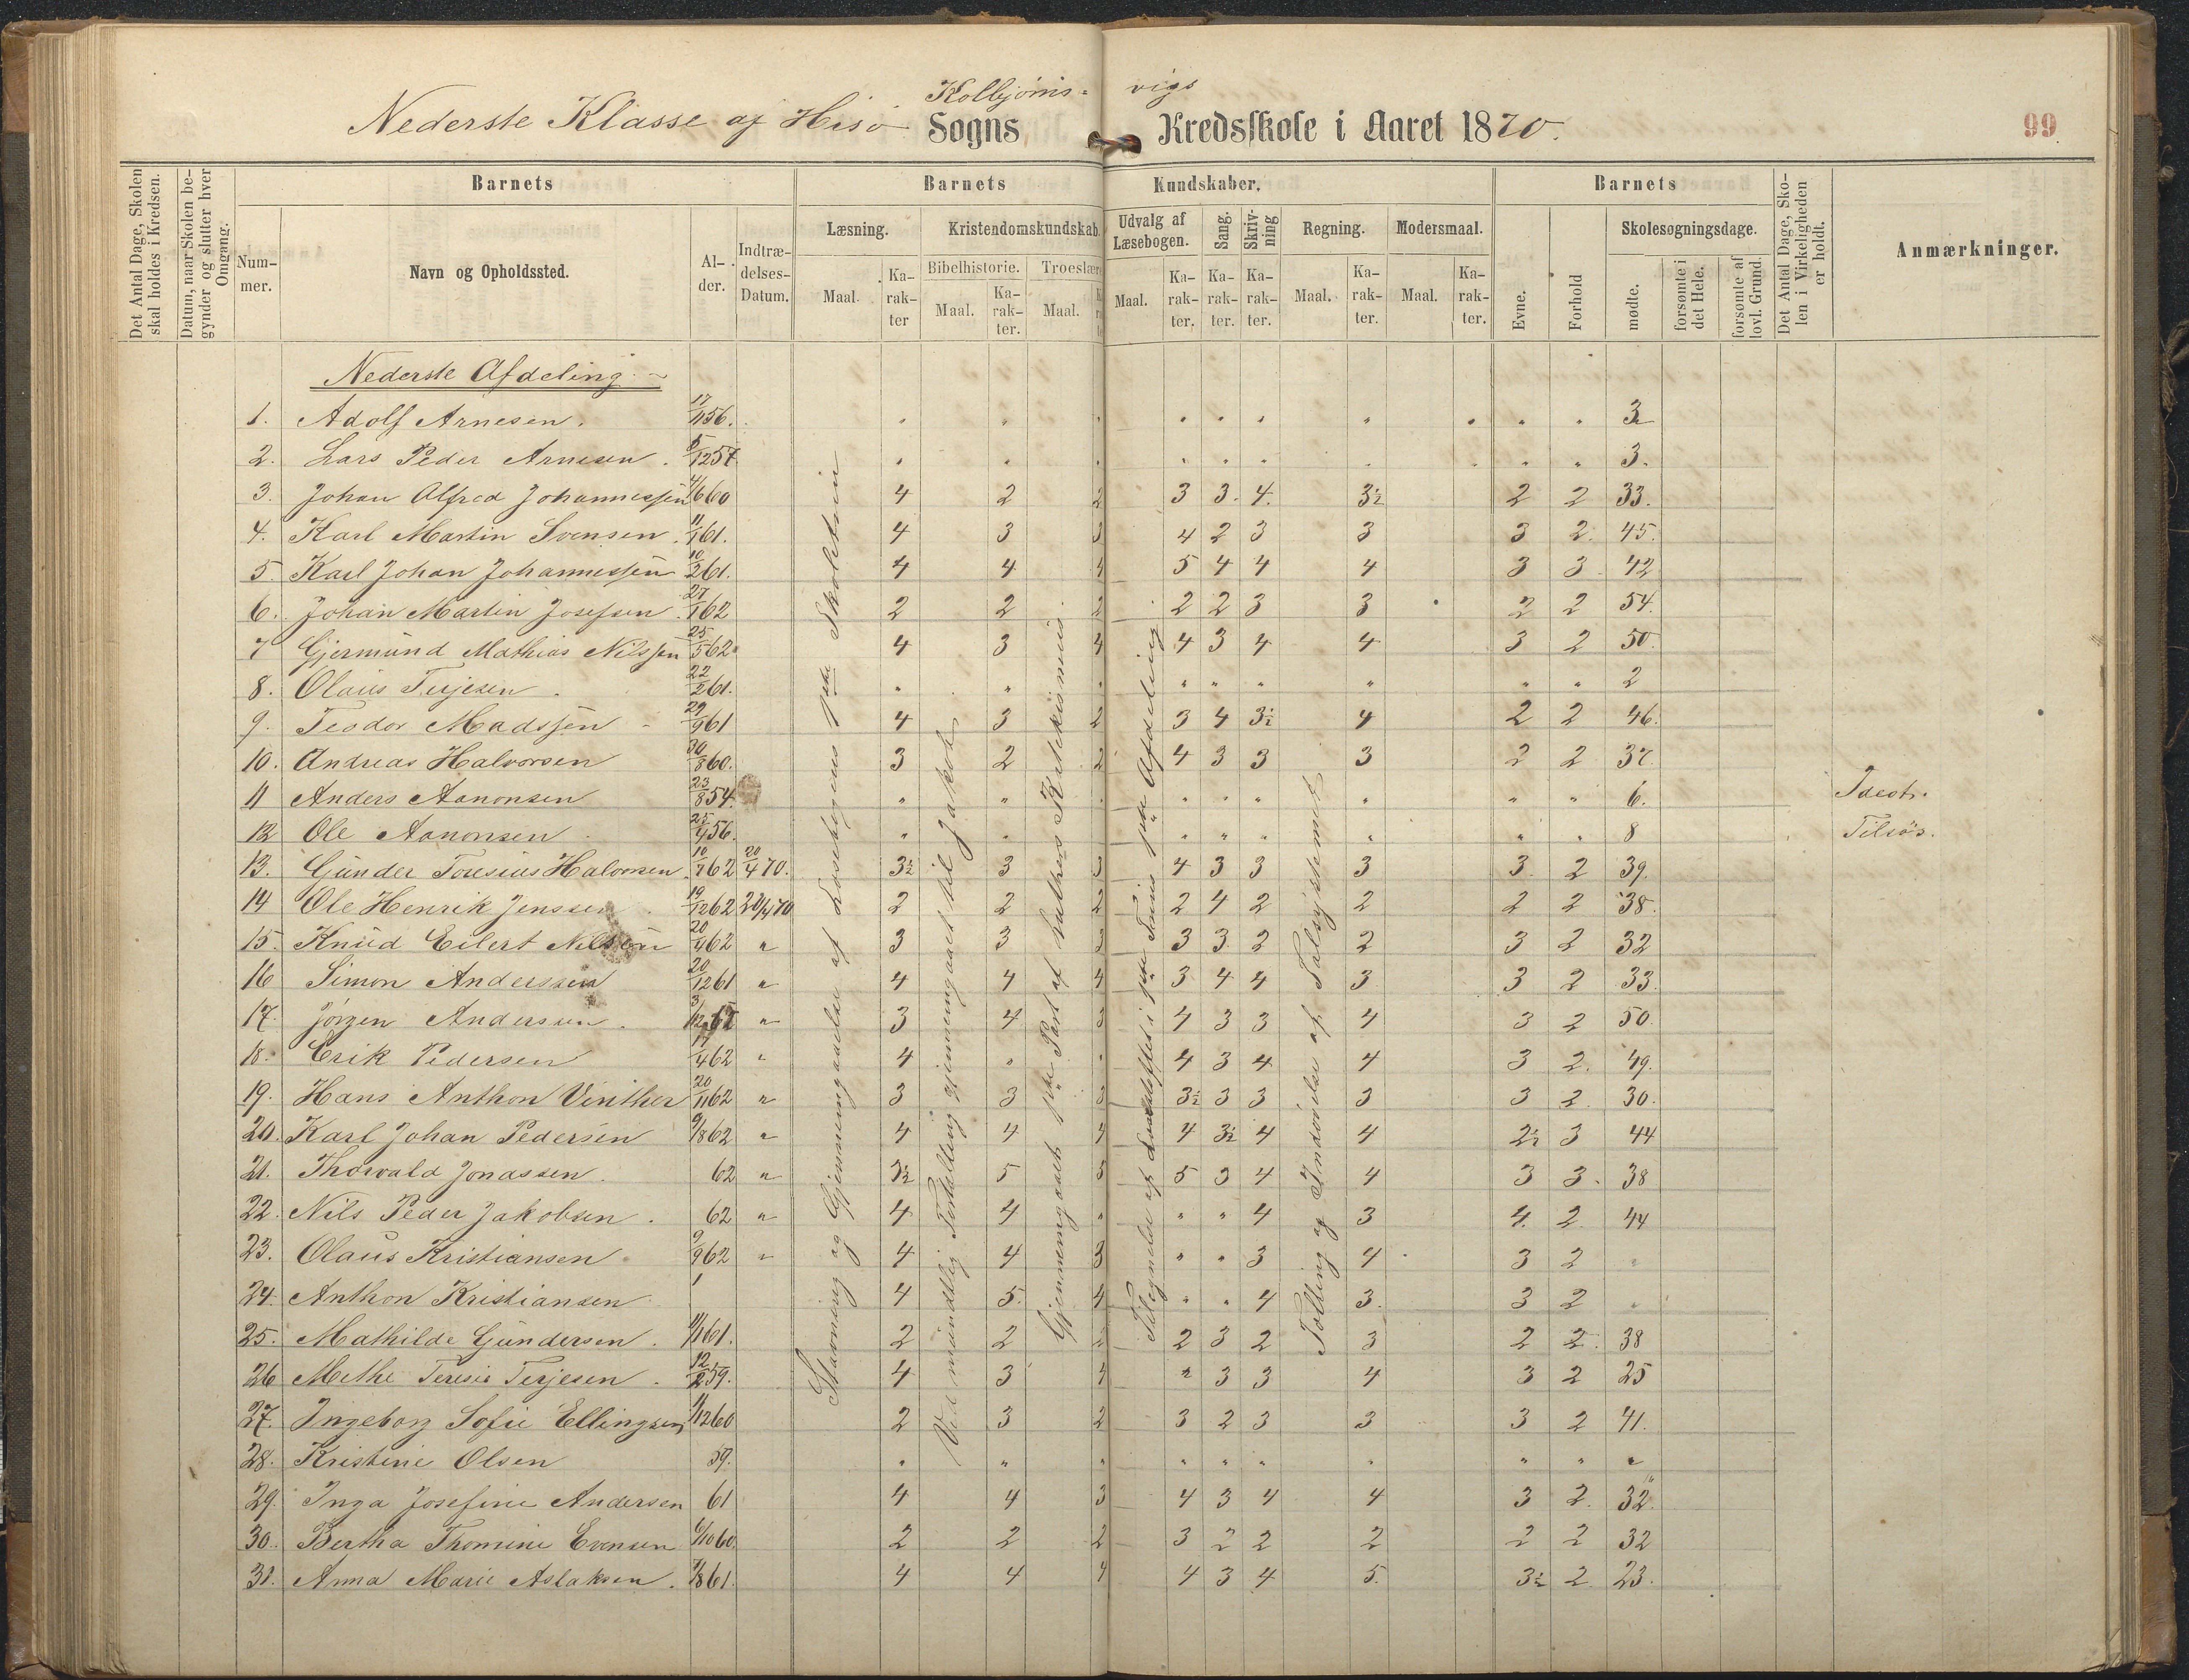 Kolbjørns- vigs
Nederste Klasse af Hisø Sogns Kredsskole i Aaret 1870.
99
Det Antal Dage, Skolen skal holdes i Kredsen.
Datum, naar Skolen begynder og slutter hver Omgang.
Barnets
Barnets Kundskaber,
Barnets
Det Antal Dage, Skolen i Virkeligheden er holdt.
Anmærkninger.
Nummer.
Navn og Opholdssted.
Alder.
Indtrædelses-Datum.
Læsning.
Kristendomskundskab.
Udvalg af Læsebogen.
Sang.
Skrivning
Regning.
Modersmaal.
Evne.
Forhold
Skolesøgningsdage.
Bibelhistorie.
Troeslære
Maal.
Karakter
Maal.
Karakter.
Maal.
Maal.
Karakter.
Karakter.
Karakter.
Maal.
Karakter.
Maal.
Karakter.
mødte.
forsømte i det Hele.
forsømte af lovl. Grund.
Nederste Afdeling
1. Adolf Arnesen. 17/11 56. " " " " " " " " " 3
2. Lars Peder Arnesen. 5/12 57 " " " " " " " " " 3.
3. Johan Alfred Johannessen 4/6 60 4 2 2 3 3. 4. 3½ 2 2 33.
4. Karl Martin Svensen. 11/1 61. 4 3 3 4 2 3 3 3 2. 45.
5. Karl Johan Johannessen 10/2 61. 4 4 4 5 4 4 4 3 3. 42
6. Johan Martin Josefsen. 27/1 62 2 2 2 2 2 3 3 2 2 54.
7 Gjermund Mathias Nilssen 25/5 62 4 3 4 4 3 4 4 3 2 50.
8. Olaus Terjesen. 22/2 61. " " " " " " " " " 2
9. Teodor Madssen 29/9 61 4 3 2 3 4 3½ 4 2 2 46.
10. Andreas Halvorsen 30/8 60. 3 2 2 4 3 3 3 2 2 37.
11 Anders Aanonsen 23/8 54. " " " " " " " " " 6.
12 Ole Aanonsen 25/4 56. " " " " " " " " " 8 Tilsøs.
13. Gunder Toresius Halvorsen. 10/7 62 20/4 70. 3½ 3 3 4 3 3 3 3. 2 39.
14 Ole Henrik Jenssen. 19/12 62 20/4 70 2 2 2 2 4 2 2 2 2 38.
15. Knud Eilert Nilssen 20/4 62 " 3 3 3 3 3. 2 2 3 2 32
16 Simon Anderssen 20/12 61 " 4 4 4 3 4 4 3 3 2 33.
17. Jørgen Andersen. " 3 4 3 4 3 3 4 3 2 50.
18. Erik Pedersen 17/4 62 " 4 " " 4 3 4 4 3 2. 49.
19. Hans Anthon Vinther 20/11 62 " 3 3 3 3½ 3 3 3 3 2 30.
20. Karl Johan Pedersen 9/8 62 " 4 4 4 4 3½ 4 4 2½ 3 44
21. Thorvald Jonassen. 62 " 3½ 5 5 5 3 4 4 3 3. 38
22. Nils Peder Jakobsen. 62 " 4 4 " " " 4 3 4. 2. 44
23. Olaus Kristiansen 9/9 62 " 4 4 3 " " 3 4 3 2 "
24. Anthon Kristiansen 4 5. 4 " " 4 3. 3 2 "
25. Mathilde Gundersen. 11/1 61. 2 2 2 2 3 2 3 2 2. 38
26 Methe Teresie Terjesen. 12/2 59. 4 3 4 " 3 3 4 3 2 25
27. Ingeborg Sofie Ellingsen 1/12 60 2 3 2 3 2 3 3 3 2 41.
28. Kristine Olsen 59. " " " " " " " " " "
29. Inga Josefine Andersen 61 4 4 3 4 3 4 4 3 2. 32.
30. Bertha Thomine Evensen 6/10 60. 2 2 2 3 2 2 2 2 2 32
31. Anna Marie Aslaksen. 7/8 61. 4 4 4 4 3 4 5. 3½ 2 23.
Stavning og Gjennemgaaelse af Læsebogens 1ste Skoletrin
Ved mundtlig Fortælling gjennemgaaet til Jakob.
Gjennemgaaet 1ste Part af Luthers Katekismus.
Tilegnelse af Livsstoffet i 1ste Trins 1ste Afdeling
Tælling og Indøvelse af Talsystemet